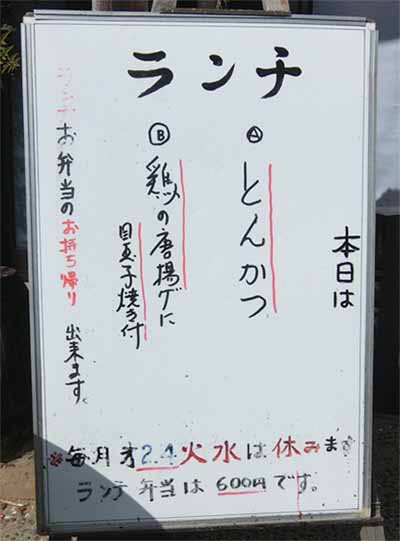 ランチ
本日は
Ⓐ とんかつ
Ⓑ 鶏の唐揚げに
目玉子焼き付
ランチお弁当のお持ち帰り 出来ます。
※毎月才2.4火水は休みます
ランチ 弁当は600円です。